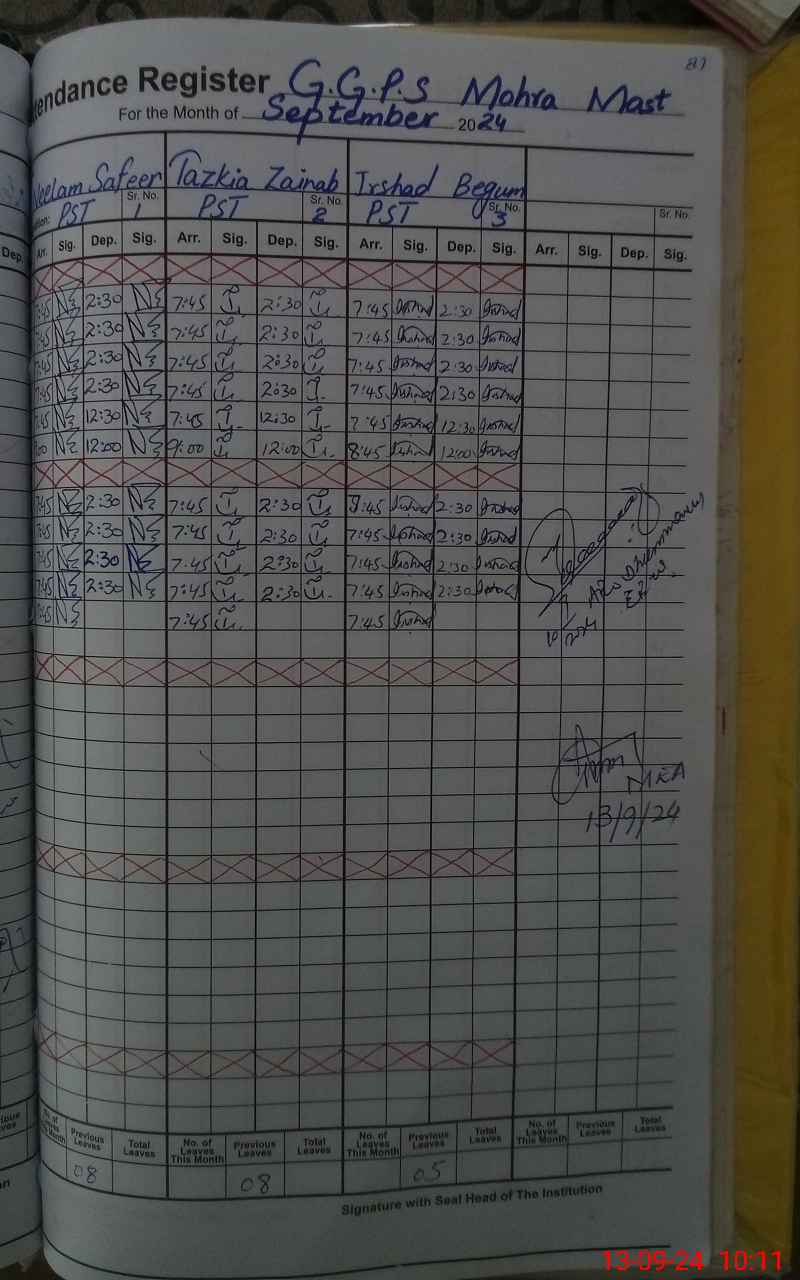 81
tendance Register G.G.P.S Mohra Mast
For the Month of September 2024
Neelam Safeer Tazkia Zainab Irshad Begum
PST Sr. No. 1 PST Sr. No. 2 PST Sr. No. 3 Sr. No.
Dep. Arr. Sig. Dep. Sig. Arr. Sig. Dep. Sig. Arr. Sig. Dep. Sig. Arr. Sig. Dep. Sig.
7:45 2:30 7:45 2:30 7:45 Irshad 2:30 Irshad
7:45 2:30 7:45 2:30 7:45 Irshad 2:30 Irshad
7:45 2:30 7:45 2:30 7:45 Irshad 2:30 Irshad
7:45 2:30 7:45 2:30 7:45 Irshad 2:30 Irshad
7:45 12:30 7:45 12:30 7:45 Irshad 12:30 Irshad
12:00 9:00 12:00 8:45 Irshad 12:00 Irshad
7:45 2:30 7:45 2:30 7:45 Irshad 2:30 Irshad
7:45 2:30 7:45 2:30 7:45 Irshad 2:30 Irshad
7:45 2:30 7:45 2:30 7:45 Irshad 2:30 Irshad
7:45 2:30 7:45 2:30 7:45 Irshad 2:30 Irshad
7:45 7:45 7:45 Irshad
MEA
13/9/24
No. of Leaves This Month Previous Leaves Total Leaves No. of Leaves This Month Previous Leaves Total Leaves No. of Leaves This Month Previous Leaves Total Leaves No. of Leaves This Month Previous Leaves Total Leaves
08 08 05
Signature with Seal Head of The Institution
13-09-24 10:11